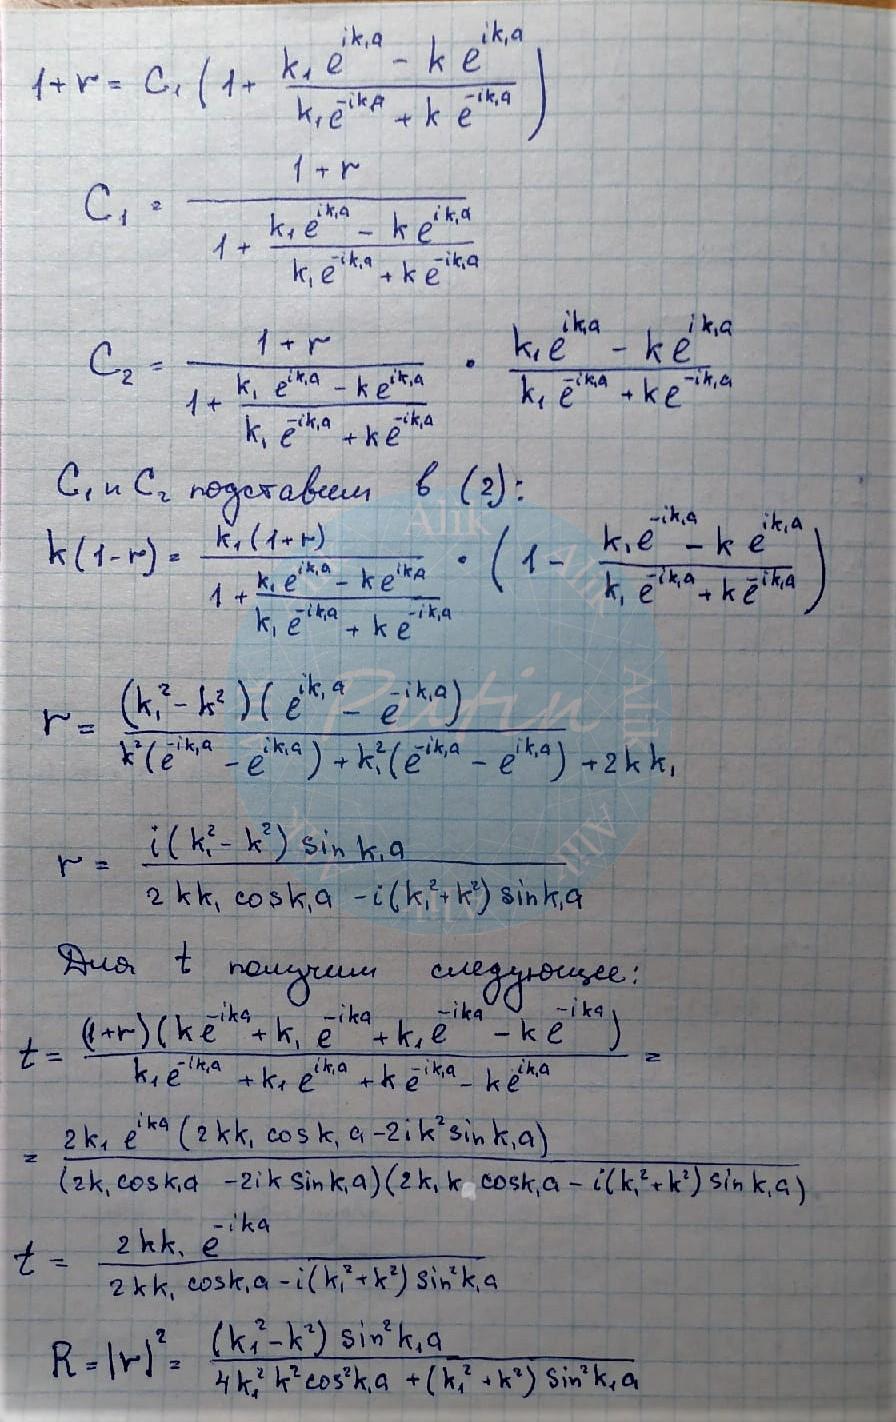 1+r = C₁ (1 + (k₁e^{ik₁a} - k e^{ik₁a}) / (k₁e^{-ik₁a} + k e^{-ik₁a}))
C₁ = (1+r) / (1 + (k₁e^{ik₁a} - k e^{ik₁a}) / (k₁e^{-ik₁a} + k e^{-ik₁a}))
C₂ = (1+r) / (1 + (k₁ e^{ik₁a} - k e^{ik₁a}) / (k₁ e^{-ik₁a} + k e^{-ik₁a})) · (k₁e^{ik₁a} - k e^{ik₁a}) / (k₁ e^{-ik₁a} + k e^{-ik₁a})
C₁ и C₂ подставим в (2):
k(1-r) = k₁(1+r) / (1 + (k₁ e^{ik₁a} - k e^{ik₁a}) / (k₁ e^{-ik₁a} + k e^{-ik₁a})) · (1 - (k₁e^{-ik₁a} - k e^{ik₁a}) / (k₁ e^{-ik₁a} + k e^{-ik₁a}))
r = (k₁² - k²)(e^{ik₁a} - e^{-ik₁a}) / (k²(e^{-ik₁a} - e^{ik₁a}) + k₁²(e^{-ik₁a} - e^{ik₁a}) + 2kk₁
r = i(k₁² - k²) sin k₁a / (2kk₁ cos k₁a - i(k₁² + k²) sin k₁a)
Для t получим следующее:
t = (1+r)(k e^{-ika} + k₁ e^{-ika} + k₁e^{-ika} - k e^{-ika}) / (k₁e^{-ik₁a} + k₁ e^{ik₁a} + k e^{-ik₁a} - k e^{ik₁a}) =
= 2k₁ e^{ika} (2kk₁ cos k₁a - 2ik² sin k₁a) / ((2k₁ cos k₁a - 2ik sin k₁a)(2k₁k cos k₁a - i(k₁² + k²) sin k₁a)
t = 2kk₁ e^{-ika} / (2kk₁ cos k₁a - i(k₁² + k²) sin²k₁a)
R = |r|² = (k₁² - k²) sin²k₁a / (4k₁²k² cos²k₁a + (k₁² + k²) sin²k₁a)
Alik
Alik
Alik
Alik
Alik
Putin